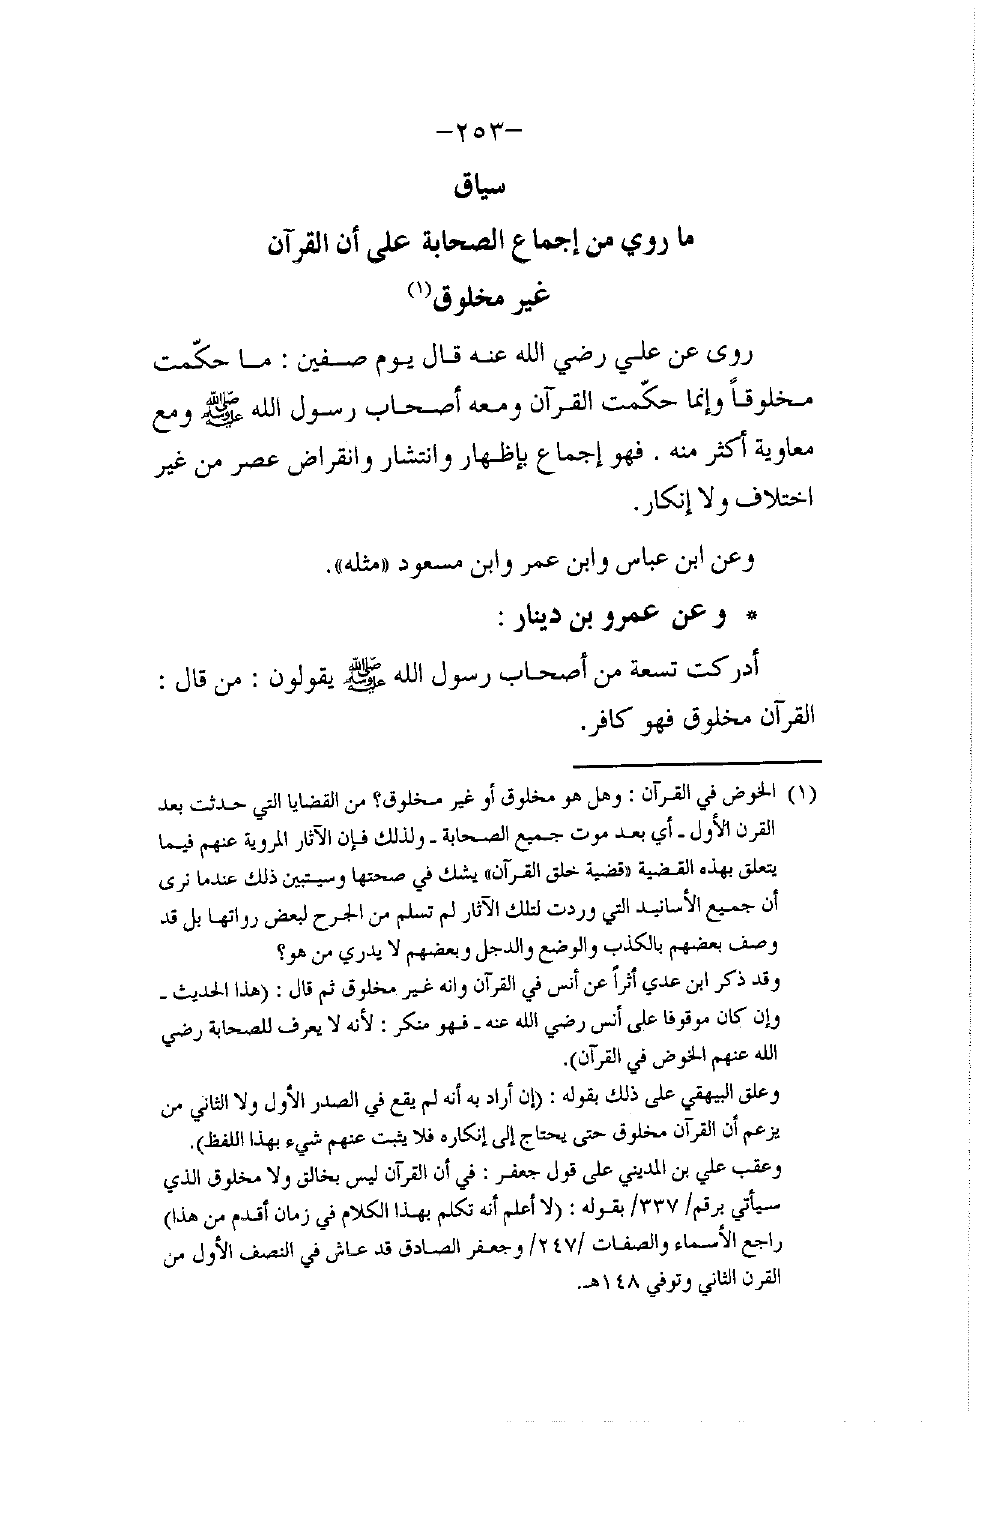 -٢٥٣-
سياق
ما روي من إجماع الصحابة على أن القرآن
غير مخلوق(١)
روى عن علي رضي الله عنه قال يوم صفين : ما حكّمت
مخلوقاً وإنما حكّمت القرآن ومعه أصحاب رسول الله ﷺ ومع
معاوية أكثر منه . فهو إجماع بإظهار وانتشار وانقراض عصر من غير
اختلاف ولا إنكار.
وعن ابن عباس وابن عمر وابن مسعود «مثله».
* وعن عمرو بن دينار :
أدركت تسعة من أصحاب رسول الله ﷺ يقولون : من قال :
القرآن مخلوق فهو كافر.
(١) الخوض في القرآن : وهل هو مخلوق أو غير مخلوق؟ من القضايا التي حدثت بعد
القرن الأول ـ أي بعد موت جميع الصحابة ـ ولذلك فإن الآثار المروية عنهم فيما
يتعلق بهذه القضية «قضية خلق القرآن» يشك في صحتها وسيتبين ذلك عندما نرى
أن جميع الأسانيد التي وردت لتلك الآثار لم تسلم من الجرح لبعض رواتها بل قد
وصف بعضهم بالكذب والوضع والدجل وبعضهم لا يدري من هو؟
وقد ذكر ابن عدي أثراً عن أنس في القرآن وانه غير مخلوق ثم قال : (هذا الحديث ـ
وإن كان موقوفا على أنس رضي الله عنه ـ فهو منكر : لأنه لا يعرف للصحابة رضي
الله عنهم الخوض في القرآن).
وعلق البيهقي على ذلك بقوله : (إن أراد به أنه لم يقع في الصدر الأول ولا الثاني من
يزعم أن القرآن مخلوق حتى يحتاج إلى إنكاره فلا يثبت عنهم شيء بهذا اللفظ).
وعقب علي بن المديني على قول جعفر : في أن القرآن ليس بخالق ولا مخلوق الذي
سيأتي برقم/ ٣٣٧/ بقوله : (لا أعلم أنه تكلم بهذا الكلام في زمان أقدم من هذا)
راجع الأسماء والصفات /٢٤٧/ وجعفر الصادق قد عاش في النصف الأول من
القرن الثاني وتوفي ١٤٨هـ.